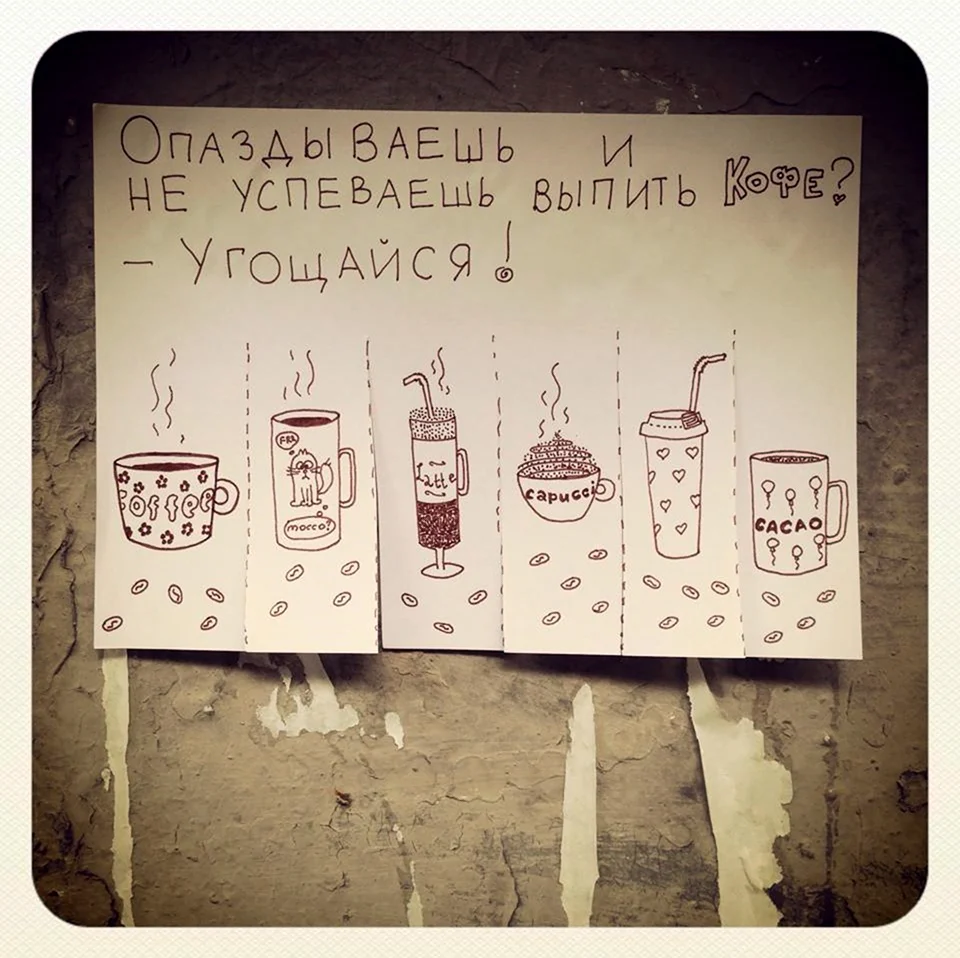 ОПАЗДЫВАЕШЬ И
НЕ УСПЕВАЕШЬ ВЫПИТЬ КОФЕ?
– УГОЩАЙСЯ!
coffee
FRR
mocco?
Latte
capucci
CACAO